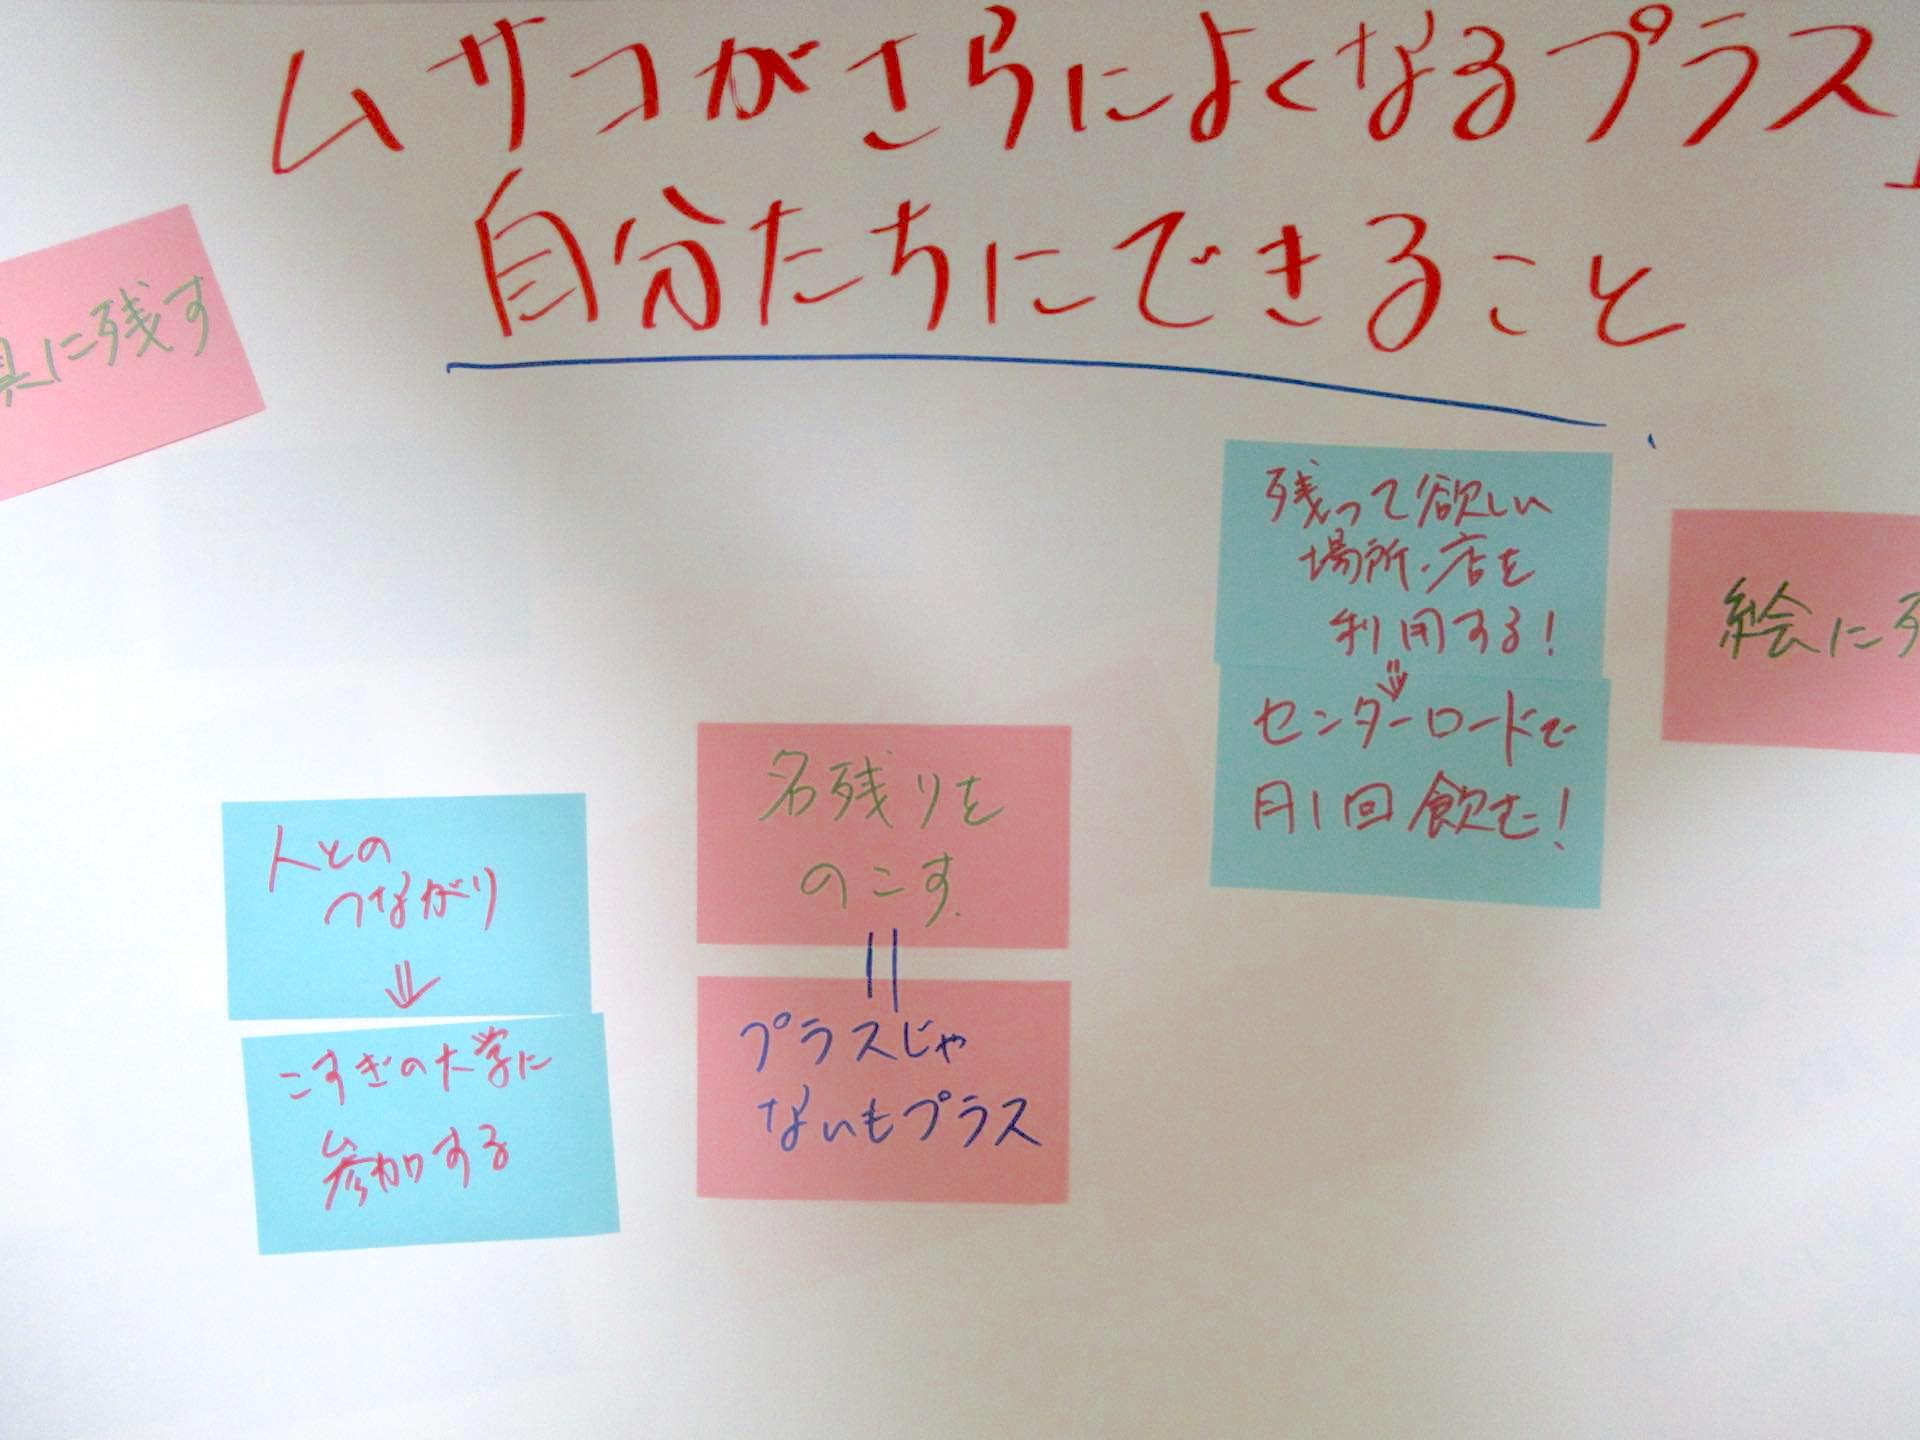 ムサコがさらによくなるプラス
自分たちにできること
真に残す
残って欲しい
場所・店を
利用する!
⇓
センターロードで
月1回飲む!
絵に
名残りを
のこす
||
プラスじゃ
ないもプラス
人との
つながり
⇓
こすぎの大学に
参加する